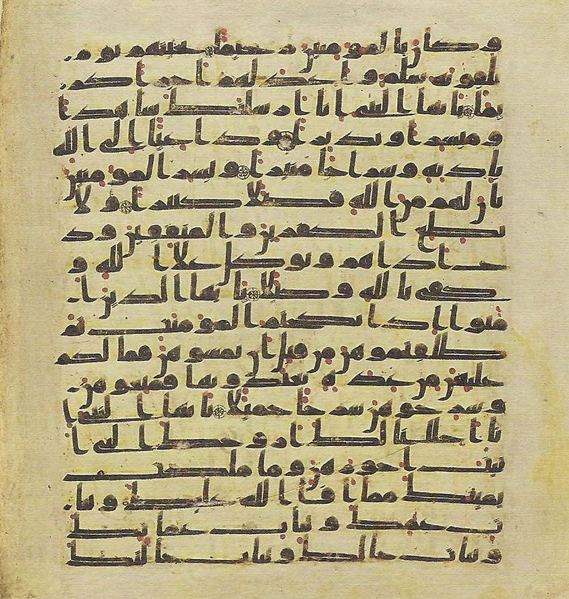 وكان بالمومنين رحيما تحيتهم يوم
يلقونه سلم واعد لهم اجرا كريما
يايها النبي انا ارسلنك شاهدا
ومبشرا ونذيرا وداعيا الى الله
باذنه وسراجا منيرا وبشر المومنين
بان لهم من الله فضلا كبيرا ولا
تطع الكفرين والمنفقين ود
ع اذاهم وتوكل على الله و
كفى بالله وكيلا يايها الذين ا
منوا اذا نكحتم المومنت ثم
طلقتموهن من قبل ان تمسوهن فما لكم
عليهن من عدة تعتدونها فمتعوهن
وسرحوهن سراحا جميلا يايها النبي ا
نا احللنا لك ازوجك التي ا
تيت اجورهن وما ملكت
يمينك مما افا الله عليك وبنا
ت عمك وبنات عمتك
وبنات خالك وبنات خلتك